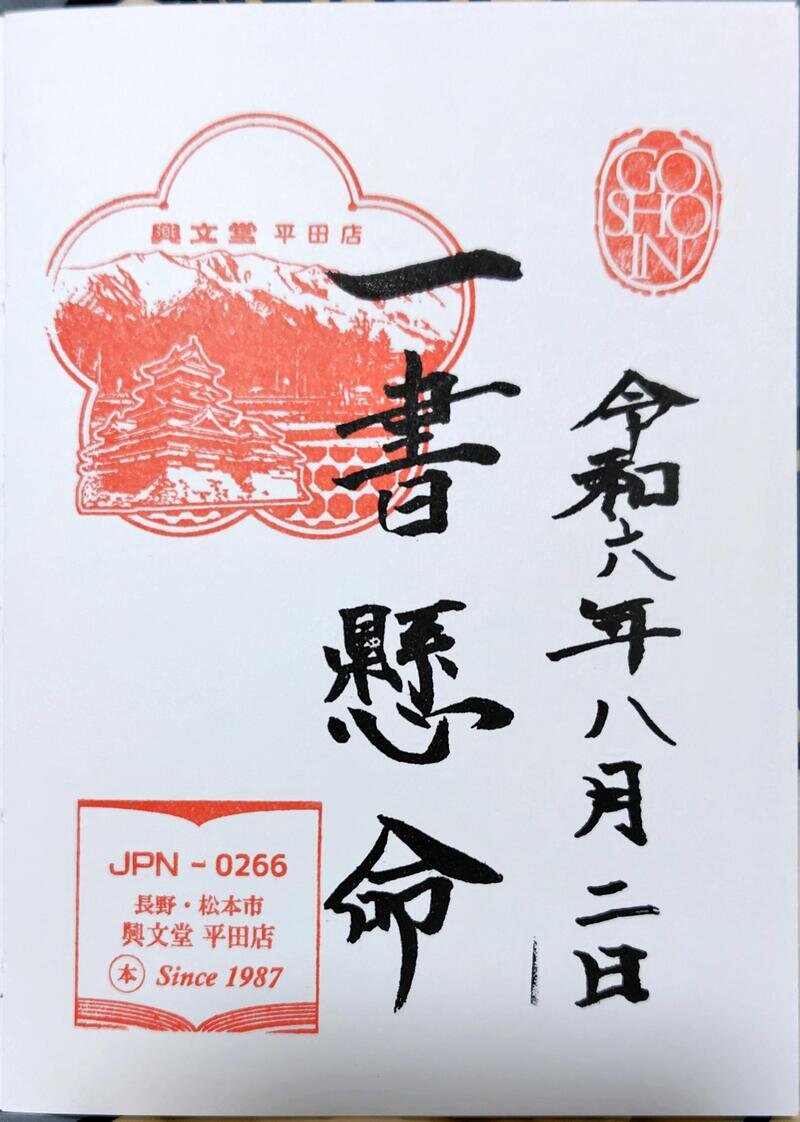 GO
SHO
IN
令和六年八月二日
一書懸命
興文堂 平田店
JPN - 0266
長野・松本市
興文堂 平田店
本 Since 1987